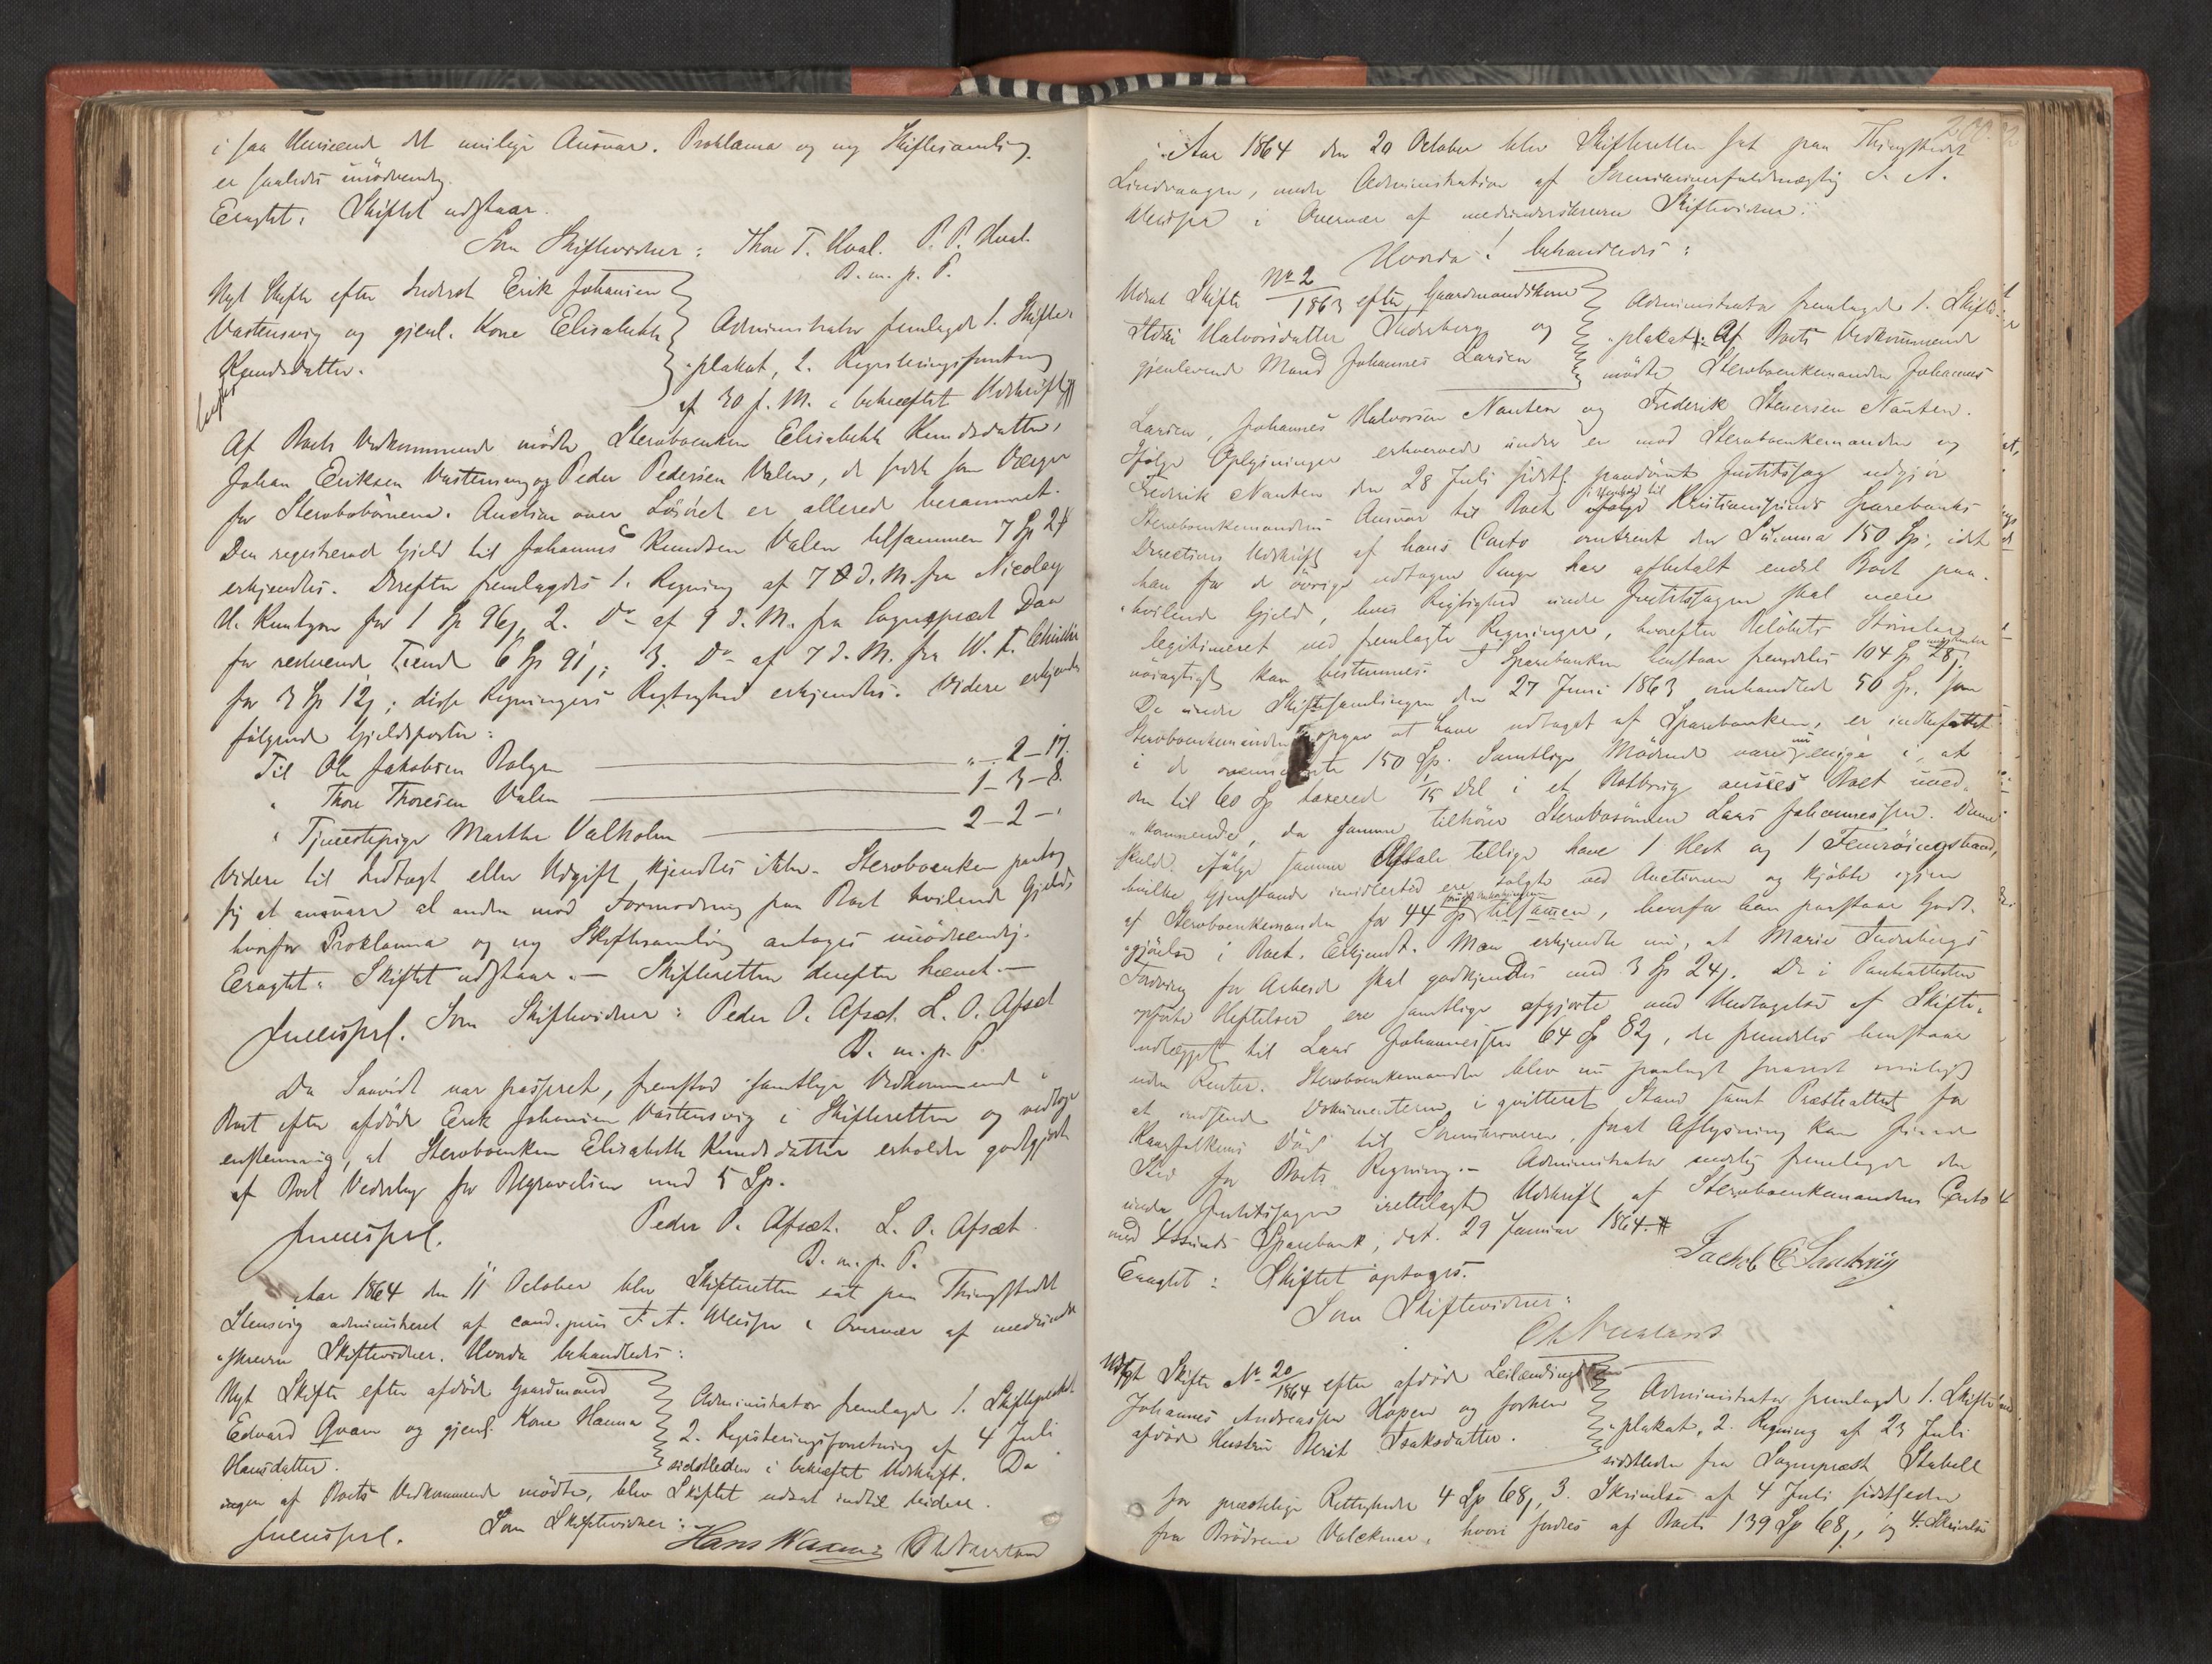 i saa Henseende det nulige Ansvar. Proklama og ny Skiftesamling
er saaledes unödvendig.
Eragtet: Skiftet udstaar.
Som Skiftevidner: Thore T. Hval. P. P. Hval.
B. m. p. P.
Nyt Skifte efter Inderst Erik Johansen
Vastensvig og gjenl. Kone Elisabeth
Knudsdatter.
Administrator fremlagde 1. Skifte-
plakat, 2. Registreringsforretning
af 30 f. M. i bekræftet Udskrift
Af Boets Vedkommende mödte Stervboenken Elisabeth Knudsdatter,
Johan Eriksen Vastensvig og Peder Pedersen Valen, de sidste som Værger
for Stervbobörnene. Auction over Lösöret er allerede berammet.
Den registrerede Gjeld til Johannes Knudsen Valen tilsammen 7 Sp 2
erkjendtes. Derefter fremlagdes 1. Regning af 7 d. M. fra Nicolay
H. Knudtzon for 1 Sp 96, 2. Do af 9 d. M. fra Sognepræst Daa
for resterende Tiende 6 Sp 91; 3. Do af 7 d. M. fra W.
for 3 Sp 12; disse Regningers Rigtighed erkjendtes. Videre erkjendtes
fölgende Gjeldsposter:
Til Ole Jakobsen " - 2 - 17.
" Thore Thoresen Valen 1 - 3 - 8.
" Tjenestepige Marthe Valholm 2 - 2 - "
Videre til Indtægt eller Udgift kjendtes ikke. Stervboenken paatog
sig at ansvare al anden mod Formodning paa Boet hvilende Gjeld,
hvorfor Proklama og ny Skiftesamling antoges unödvendig.
Eragtet: Skiftet udstaar. — Skifteretten derefter hævet. —
Som Skiftevidner: Peder O. Afsæt. L. O. Afsæt
B. m. p. P.
Da Saavidt var passeret, fremstod samtlige Vedkommende i
Boet efter afdöde Erik Johansen Vastensvig i Skifteretten og vedtoge
enstemmig, at Stervboenken Elisabeth Knudsdatter erholder godtgjort
af Boet Vederlag for Begravelsen med 5 Sp.
Peder O. Afsæt. L. O. Afsæt
B. m. p. P.
Aar 1864 den 11 October blev Skifteretten sat paa Thingstedet
Stensvig administreret af cand. juris F. A. i Overvær af medunder-
skrevne Skiftevidner. Hvorda behandledes:
Nyt Skifte efter afdöde Gaardmand
Edvard Qvam og gjenl. Kone Hanna
Hansdatter.
Administrator fremlagde 1. Skifteplakat
2. Registreringsforretning af 4 Juli
sidstleden i bekræftet Udskrift. Da
ingen af Boets Vedkommende mödte, blev Skiftet udsat indtil videre.
Som Skiftevidner:
Hans
Aar 1864 den 20 October blev Skifteretten sat paa Thingstedet
Lindvaagen, under Administration af Sorenskriverfuldmægtig F. A.
i Overvær af medunderskrevne Skiftevidner:
Hvorda! behandledes:
Udsat Skifte No 2/1863 efter Gaardmandskone
Halvorsdatter og
gjenlevende Mand Johannes Larsen
Administrator fremlagde 1. Skifte-
plakat. Af Boets Vedkommende
mödte Stervboenkemanden Johannes
Larsen, Johannes Halvorsen Nausten og Frederik Steversen Nausten.
Ifölge Oplysninger erhvervede under en mod Stervboenkemanden og
Fredrik Nausten den 28 Juli sidstl. paadömt Justitssag udgjör
Stervboenkemandens Ansvar til Boet i Henhold til Kristianssunds Sparebanks
Directions Udskrift af hans Conto omtrent den Summa 150 Sp, idet
han for de övrige udtagne Penge har afbetalt endel Boet paa-
hvilende Gjeld, hvis Rigtighed under Justitssagen skal være
legitimeret ved fremlagte Regninger, hvorefter Belöbets Störrelse
nöiagtigt kan bestemmes. I Sparebanken henstaar fremdeles 104 Sp 28
De under Skiftesamlingen den 27 Juni 1863 omhandlede 50 Sp, som
Stervboenkemanden opgav at have udtaget af Sparebanken, er indbefattet
i de 150 Sp. Samtlige Mödende vare nu enige i, at
den til 60 Sp taxerede 1/15 Del i et Notbrug ansees Boet uved-
kommende, da samme tilhörer Sterbosönnen Lars Johannessen. Denne
skulde ifölge samme Aftale tillige have 1 Hest og 1 Femröringsbaad,
hvilke Gjenstande imidlertid ere solgte ved Auctionen og kjöbte igjen
af Stervboenkemanden for 44 Sp tilsammen, hvorfor han paastaar Godt-
gjörelse i Boet. Erkjendt. Man erkjendte nu, at Marie
Fordring for Arbeide skal godkjendes med 3 Sp 24. De i Pantattesten
opförte Heftelser ere samtlige afgjorte med Undtagelse af Skifte-
udlægget til Lars Johannessen 64 Sp 82, de fremdeles henstaar
uden Renter. Stervboenkemanden blev nu paalagt snarest muligt
at indsende Dokumenterne i qvitteret Stand samt Præsteattest for
til Sorenskriveren, saat Aflysning kan finde
Sted for Boets Regning. — Administrator endelig fremlagde den
under Justitssagen irettelagte Udskrift af Stervboenkemandens Conto
med Xsunds Sparebank, dat. 29 Januar 1864.
Eragtet: Skiftet optages.
Som Skiftevidner:
Nyt Skifte No 20/1864 efter afdöde Leilænding
Johannes Andreassen Hopen og forhen
afdöde Hustru Berit Isaksdatter.
Administrator fremlagde 1. Skifte-
plakat, 2. Regning af 23 Juli
sidstleden fra Sognepræst Stabell
for præstelige Rettigheder 4 Sp 68, 3. Skrivelse af 4 Juli sidstleden
fra Brödrene Volckmar, hvori fordres af Boet 139 Sp 68, og 4. Skrivelse